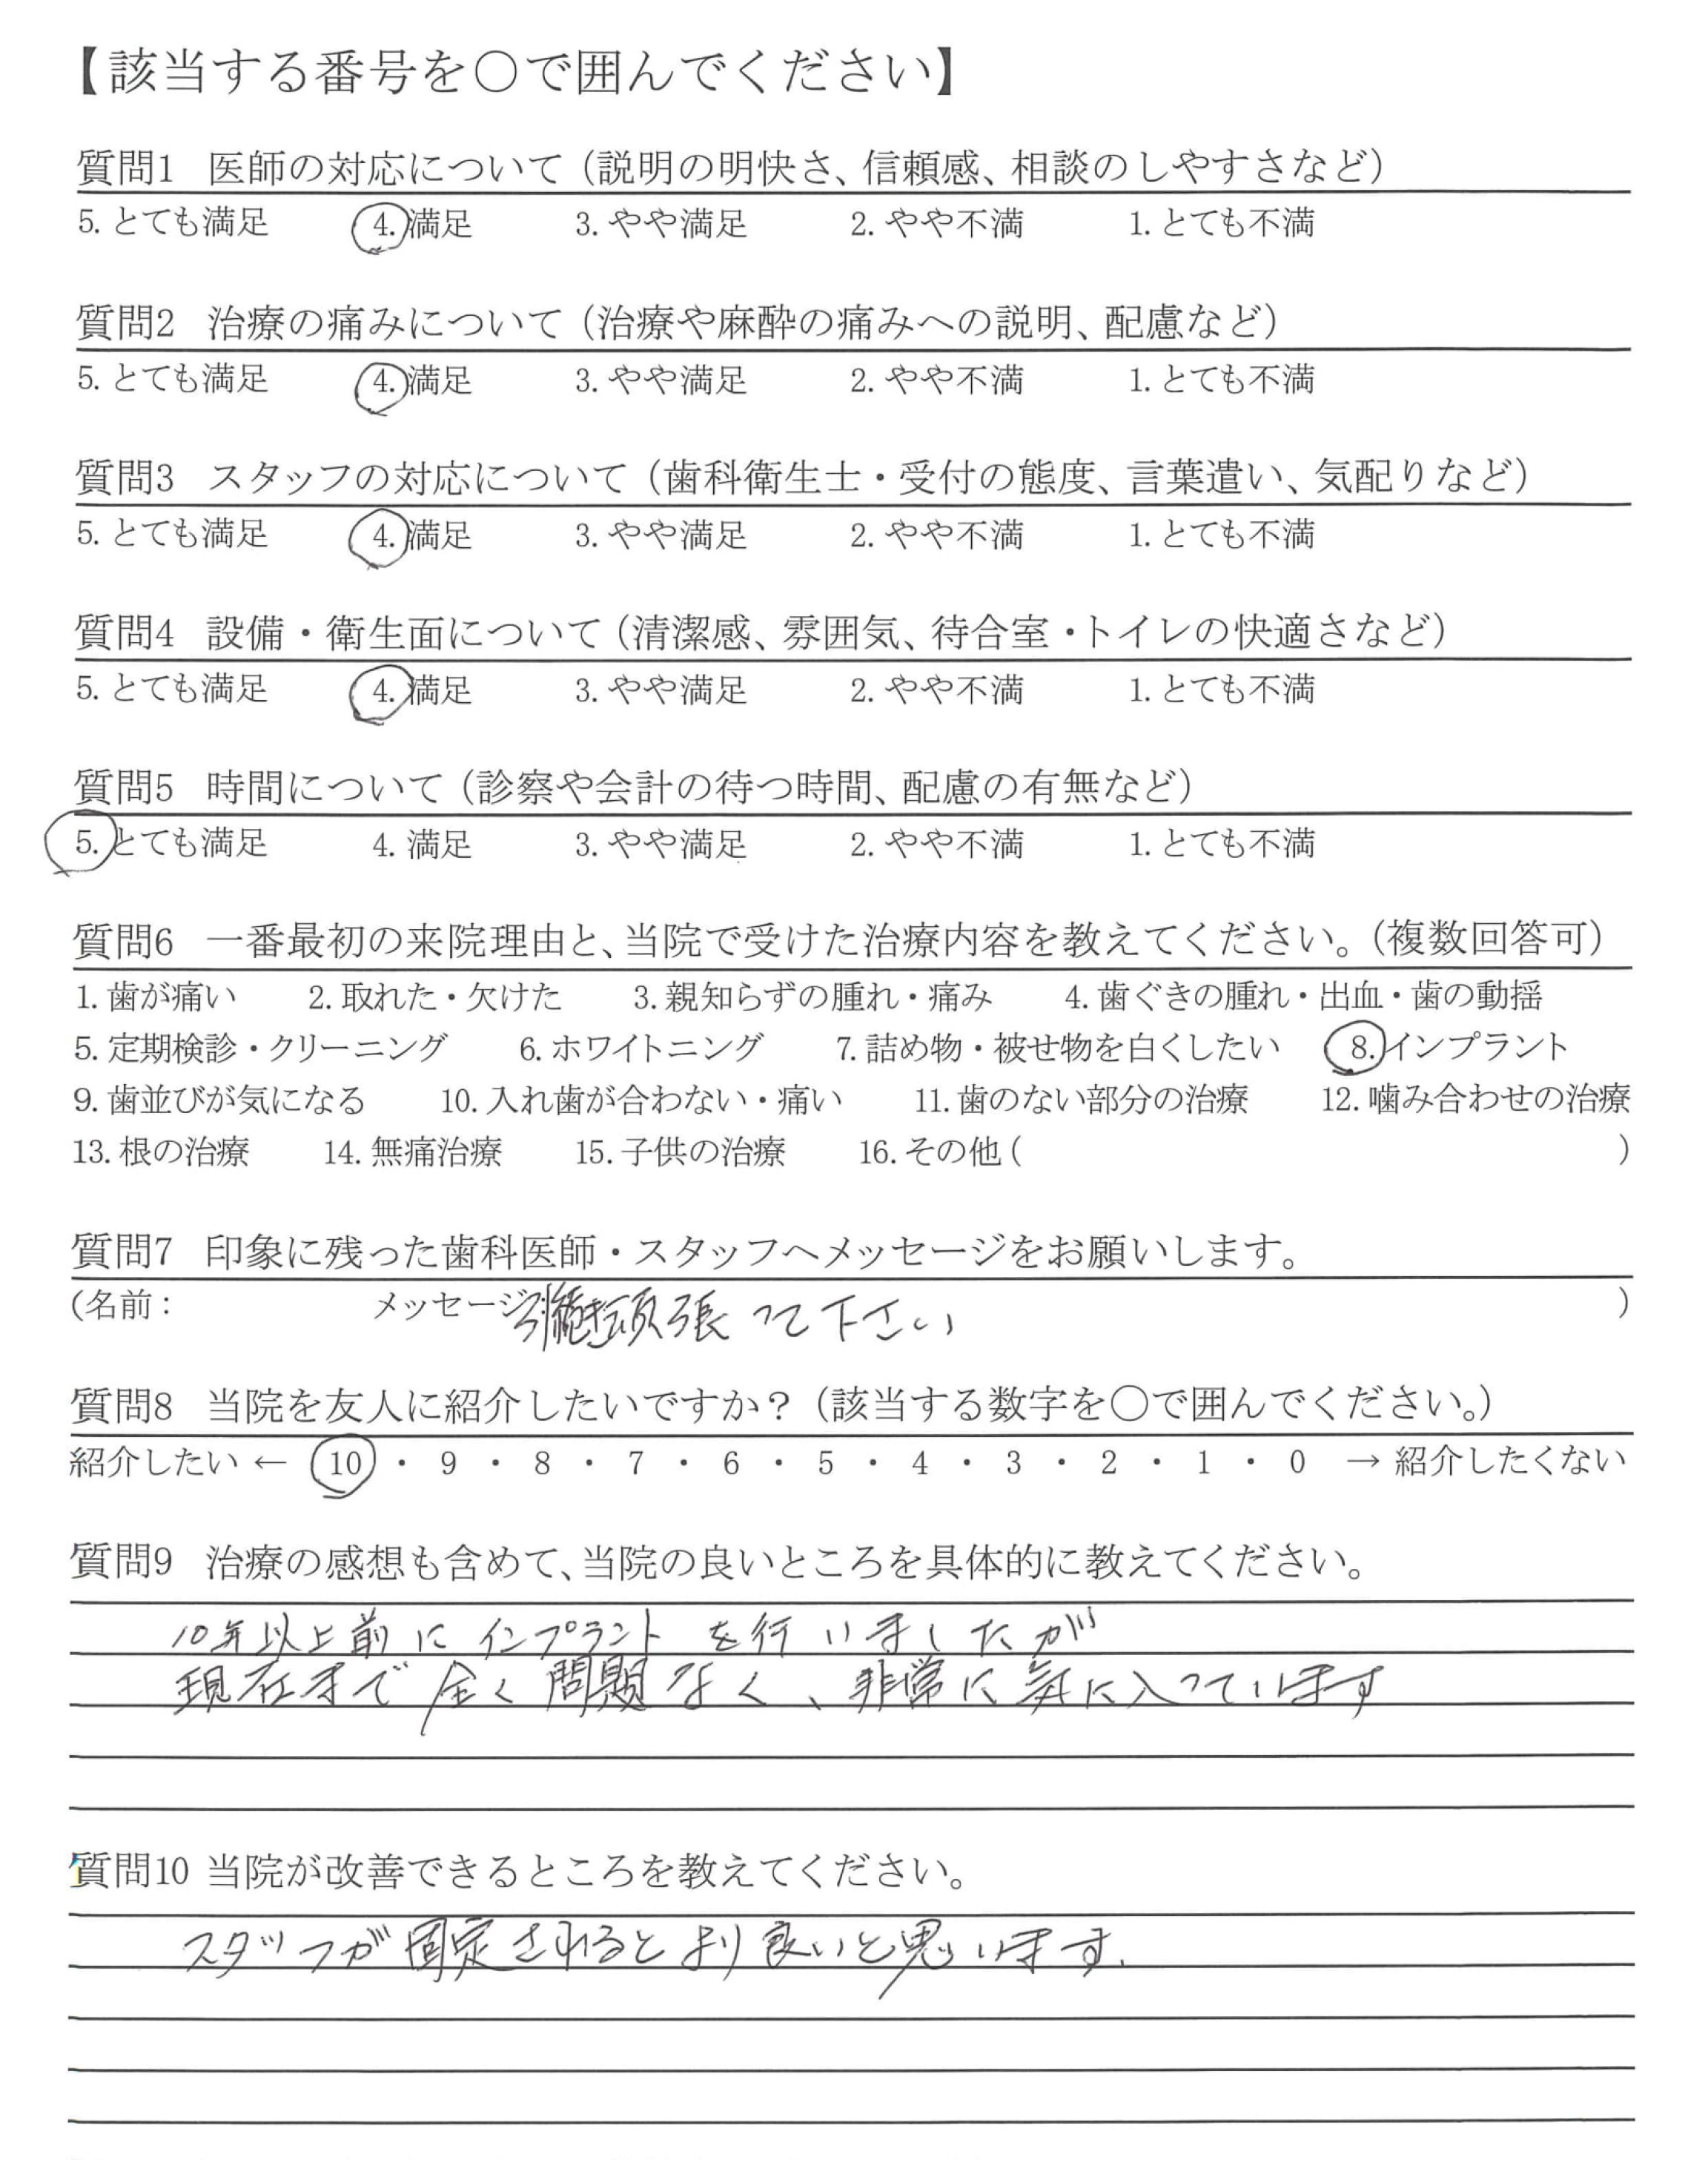 【該当する番号を○で囲んでください】
質問1 医師の対応について（説明の明快さ、信頼感、相談のしやすさなど）
5. とても満足 4. 満足 3. やや満足 2. やや不満 1. とても不満
質問2 治療の痛みについて（治療や麻酔の痛みへの説明、配慮など）
5. とても満足 4. 満足 3. やや満足 2. やや不満 1. とても不満
質問3 スタッフの対応について（歯科衛生士・受付の態度、言葉遣い、気配りなど）
5. とても満足 4. 満足 3. やや満足 2. やや不満 1. とても不満
質問4 設備・衛生面について（清潔感、雰囲気、待合室・トイレの快適さなど）
5. とても満足 4. 満足 3. やや満足 2. やや不満 1. とても不満
質問5 時間について（診察や会計の待つ時間、配慮の有無など）
5. とても満足 4. 満足 3. やや満足 2. やや不満 1. とても不満
質問6 一番最初の来院理由と、当院で受けた治療内容を教えてください。（複数回答可）
1. 歯が痛い 2. 取れた・欠けた 3. 親知らずの腫れ・痛み 4. 歯ぐきの腫れ・出血・歯の動揺
5. 定期検診・クリーニング 6. ホワイトニング 7. 詰め物・被せ物を白くしたい 8. インプラント
9. 歯並びが気になる 10. 入れ歯が合わない・痛い 11. 歯のない部分の治療 12. 噛み合わせの治療
13. 根の治療 14. 無痛治療 15. 子供の治療 16. その他（ ）
質問7 印象に残った歯科医師・スタッフへメッセージをお願いします。
（名前： メッセージ 引続き頑張って下さい ）
質問8 当院を友人に紹介したいですか？（該当する数字を○で囲んでください。）
紹介したい ← 10 ・ 9 ・ 8 ・ 7 ・ 6 ・ 5 ・ 4 ・ 3 ・ 2 ・ 1 ・ 0 → 紹介したくない
質問9 治療の感想も含めて、当院の良いところを具体的に教えてください。
10年以上前にインプラントを行いましたが
現在まで全く問題なく、非常に気に入っています
質問10 当院が改善できるところを教えてください。
スタッフが固定されるとより良いと思います.